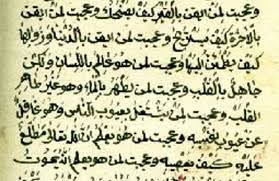 وعجبت لمن ايقن بالقبر كيف يضحك وعجبت لمن ايقن
بالاخرة كيف يستريح وعجبت لمن ايقن بالدنيا وزوالها
كيف يطمئن اليها وعجبت لمن هو عالم باللسان ولكن
جاهل بالقلب وعجبت لمن يتطهر بالماء وهو غير طاهر
القلب وعجبت لمن يشتغل بعيوب الناس وهو غافل
عن عيوب نفسه وعجبت لمن هو يعلم ان الله تعالى مطلع
عليه كيف يعصيه وعجبت لمن هو يعلم انه يموت